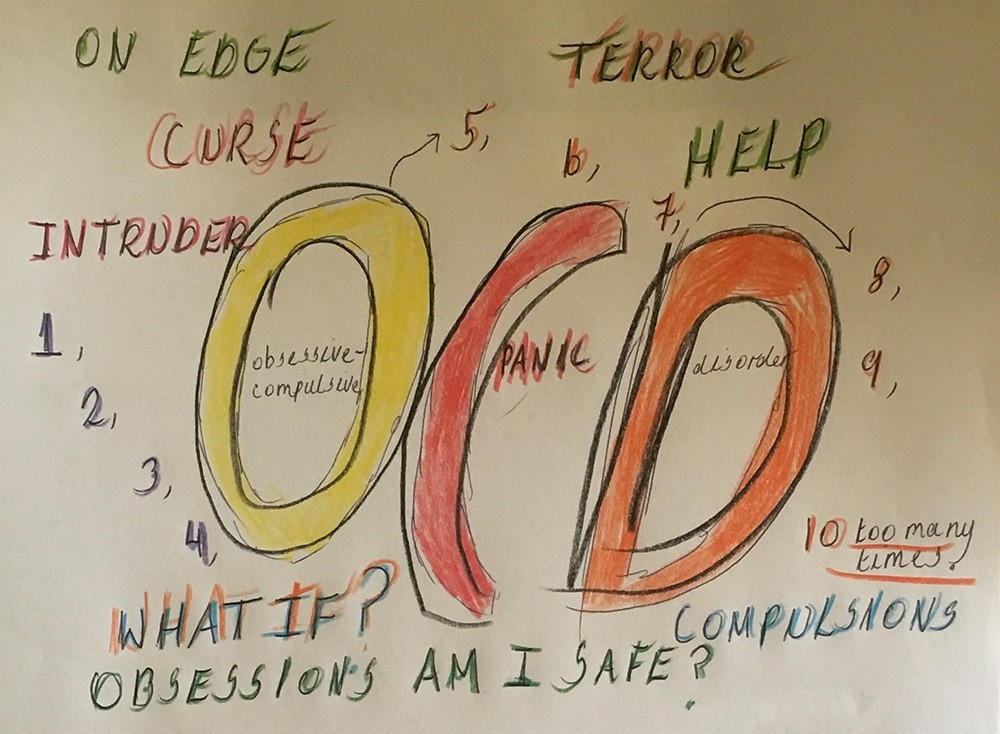 ON EDGE
TERROR
CURSE
5,
6,
HELP
INTRUDER
7,
OCD
8,
1,
obsessive-
compulsive
PANIC
disorder
9,
2,
3,
4,
10 too many
times.
WHAT IF?
COMPULSIONS
OBSESSIONS AM I SAFE?